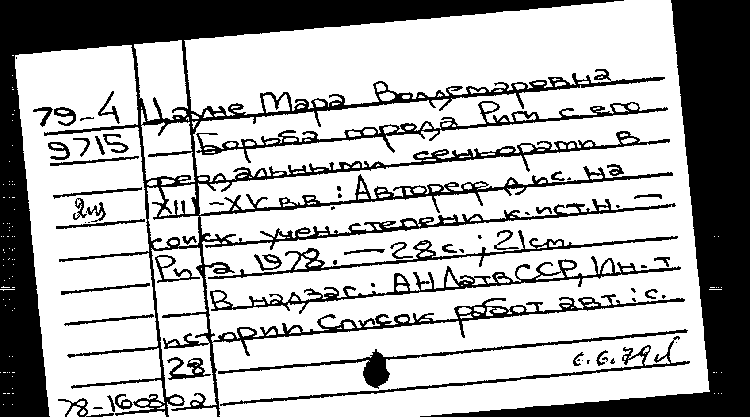 79-4 Цауне, Мара Волдемаровна
9715 Борьба города Риги с его
феодальными сеньорами в
2из XIII-XV в.в.: Автореф. дис. на
соиск. учен. степени к.ист.н. —
Рига, 1978. — 28 с.; 21 см.
В надзаг.: АН ЛатвССР, Ин-т
истории. Список работ авт.: с.
28
6.6.79